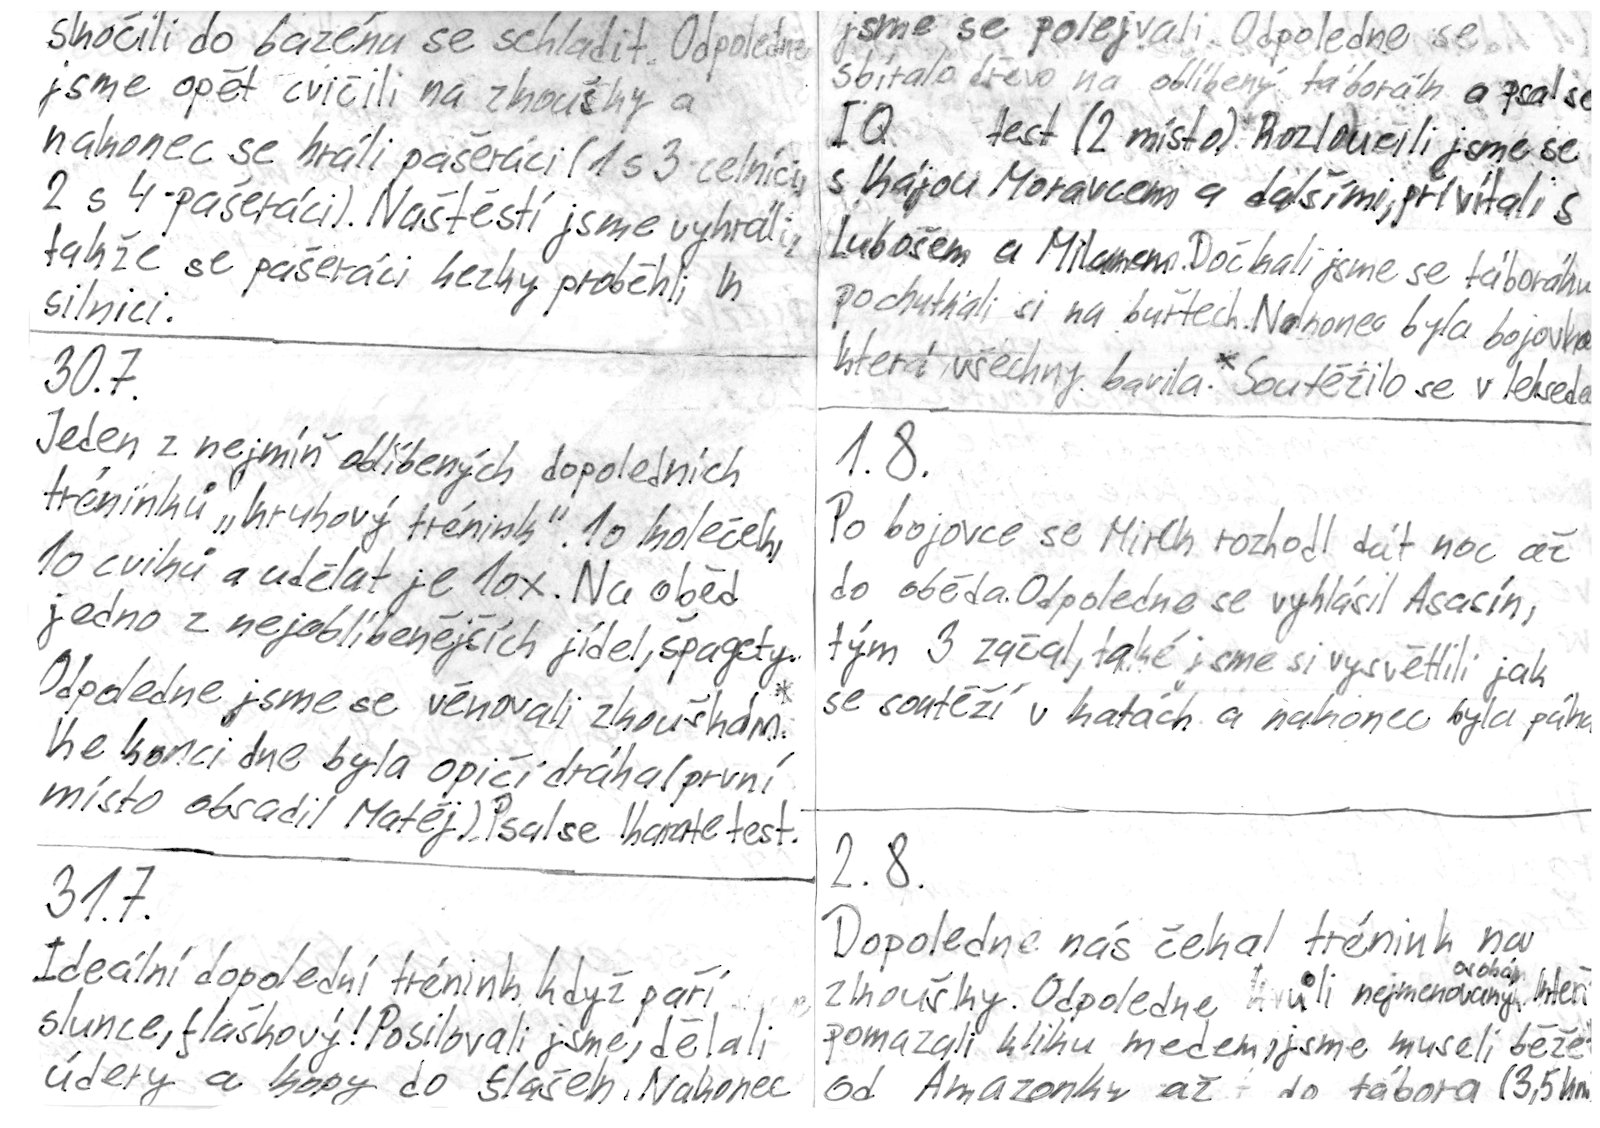 skočili do bazénu se schladit. Odpoledne
jsme opět cvičili na zkoušky a
nakonec se hráli pašeráci (1 s 3-celníci,
2 s 4-pašeráci). Naštěstí jsme vyhráli,
takže se pašeráci hezky proběhli k
silnici.
30.7.
Jeden z nejmíň oblíbených dopoledních
tréninků „kruhový trénink“. 10 koleček,
10 cviků a udělat je 10x. Na oběd
jedno z nejoblíbenějších jídel, špagety.
Odpoledne jsme se věnovali zkouškám.*
Ke konci dne byla opičí dráha (první
místo obsadil Matěj). Psal se karate test.
31.7.
Ideální dopolední trénink když paří
slunce, flaškový! Posilovali jsme, dělali
údery a kopy do flašek. Nakonec
jsme se polejvali. Odpoledne se
sbíralo dřevo na oblíbený táborák a psal se
IQ test (2 místo). Rozloučili jsme se
s Kájou Moravcem a dalšími, přivítali s
Lubošem a Milanem. Dočkali jsme se táboráku
pochutnali si na buřtech. Nakonec byla bojovka
která všechny bavila.* Soutěžilo se v leksede
1.8.
Po bojovce se Mirek rozhodl dát noc až
do oběda. Odpoledne se vyhlásil Asasín,
tým 3 začal, také jsme si vysvětlili jak
se soutěží v katách a nakonec byla páka
2.8.
Dopoledne nás čekal trénink na
zkoušky. Odpoledne kvůli nejmenovaným osobám kteří
pomazali kliku medem, jsme museli běže
od Amazonky až do tábora (3,5km